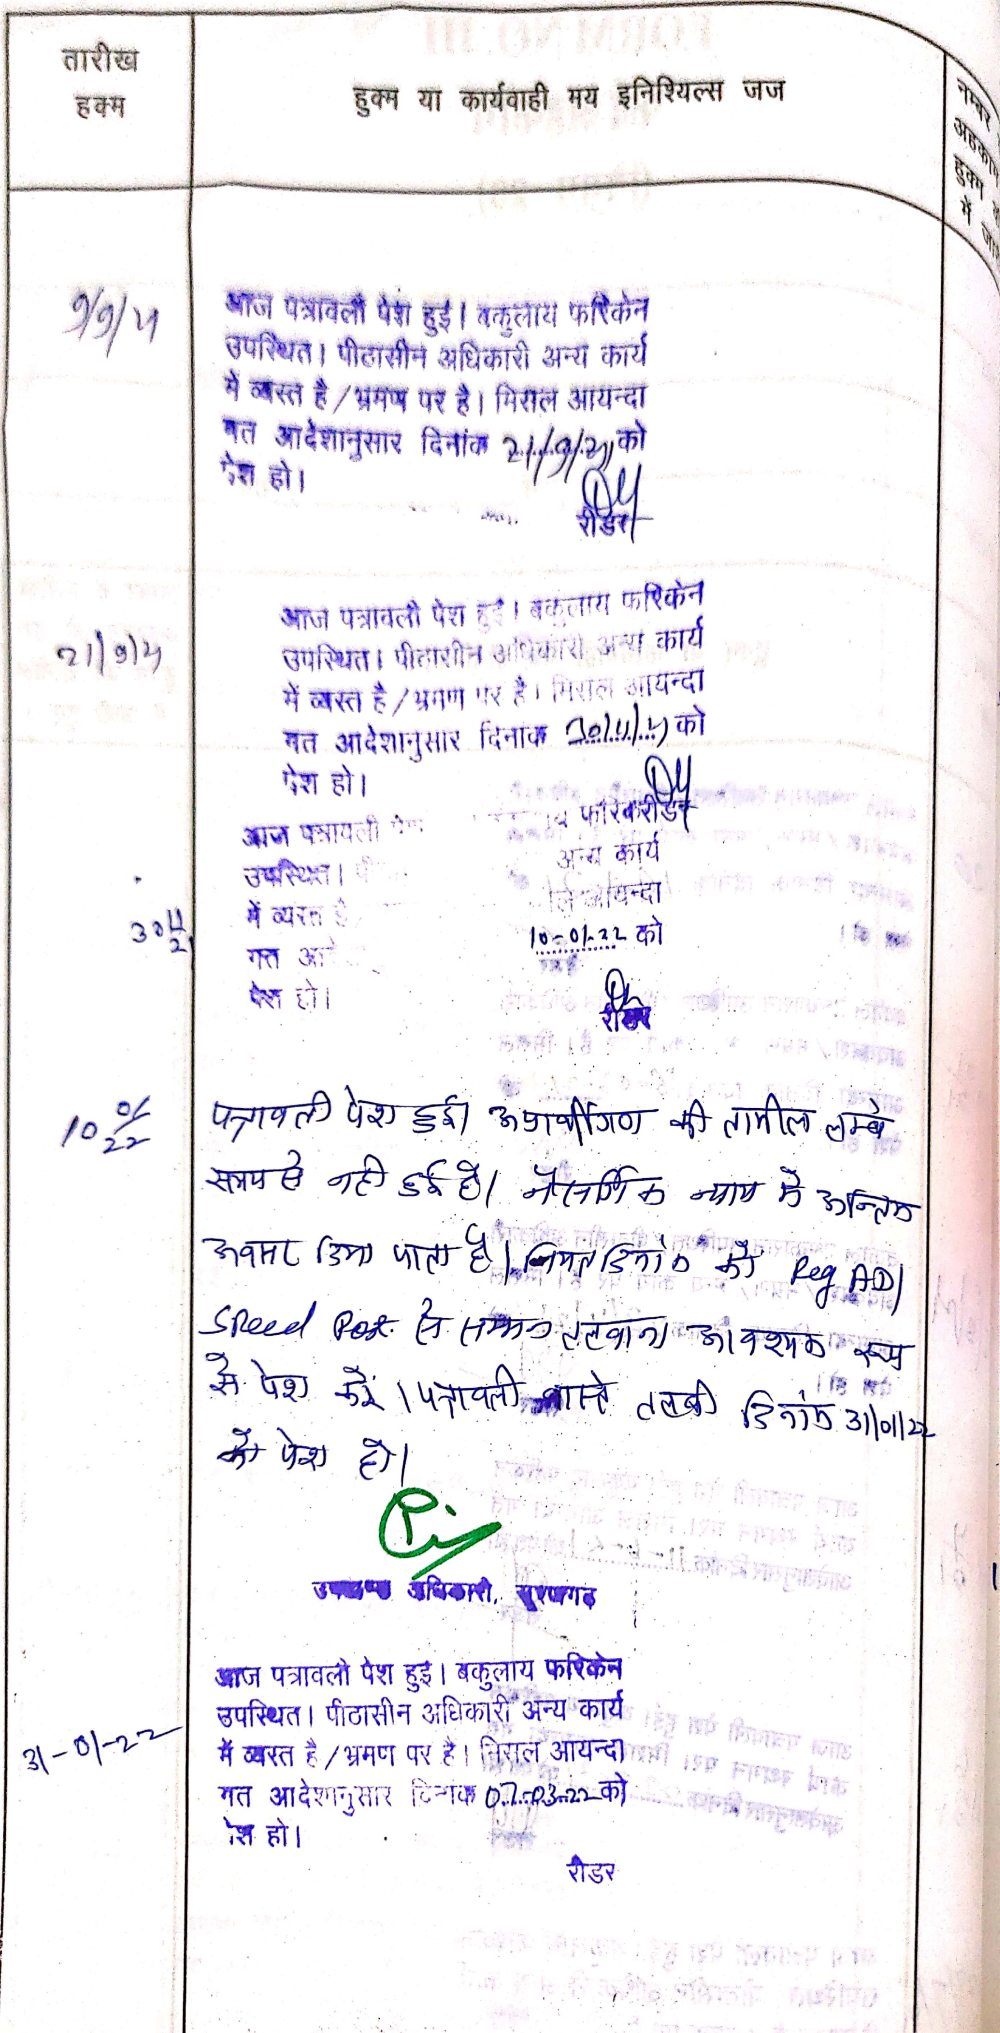 तारीख
हुक्म
हुक्म या कार्यवाही मय इनिशियल्स जज
नम्बर
अहकाम
हुक्म
में
9/9/21
आज पत्रावली पेश हुई। वकुलाय फरिकेन
उपस्थित। पीठासीन अधिकारी अन्य कार्य
में व्यस्त है/भ्रमण पर है। मिसल आयन्दा
गत आदेशानुसार दिनांक 21/9/21 को
पेश हो।
रीडर
21/9/21
आज पत्रावली पेश हुई। वकुलाय फरिकेन
उपस्थित। पीठासीन अधिकारी अन्य कार्य
में व्यस्त है/भ्रमण पर है। मिसल आयन्दा
गत आदेशानुसार दिनांक 30/11/21 को
पेश हो।
रीडर
आज पत्रावली पेश
उपस्थित। पी अन्य कार्य
में व्यस्त है आयन्दा
30 11/21
गत आदे 10-01-22 को
पेश हो।
रीडर
10 01/22
पत्रावली पेश हुई। अप्रार्थीगण की तामील लम्बे
समय से नही हुई है। नैसर्गिक न्याय में अन्तिम
अवसर दिया जाता है। नियत दिनांक को Reg AD/
Speed Post से सम्मन तलवाना आवश्यक रूप
से पेश करें। पत्रावली वास्ते तलबी दिनांक 31/01/22
को पेश हो।
उपखण्ड अधिकारी, सूरतगढ़
31-01-22
आज पत्रावली पेश हुई। वकुलाय फरिकेन
उपस्थित। पीठासीन अधिकारी अन्य कार्य
में व्यस्त है/भ्रमण पर है। मिसल आयन्दा
गत आदेशानुसार दिनांक 07-03-22 को
पेश हो।
रीडर